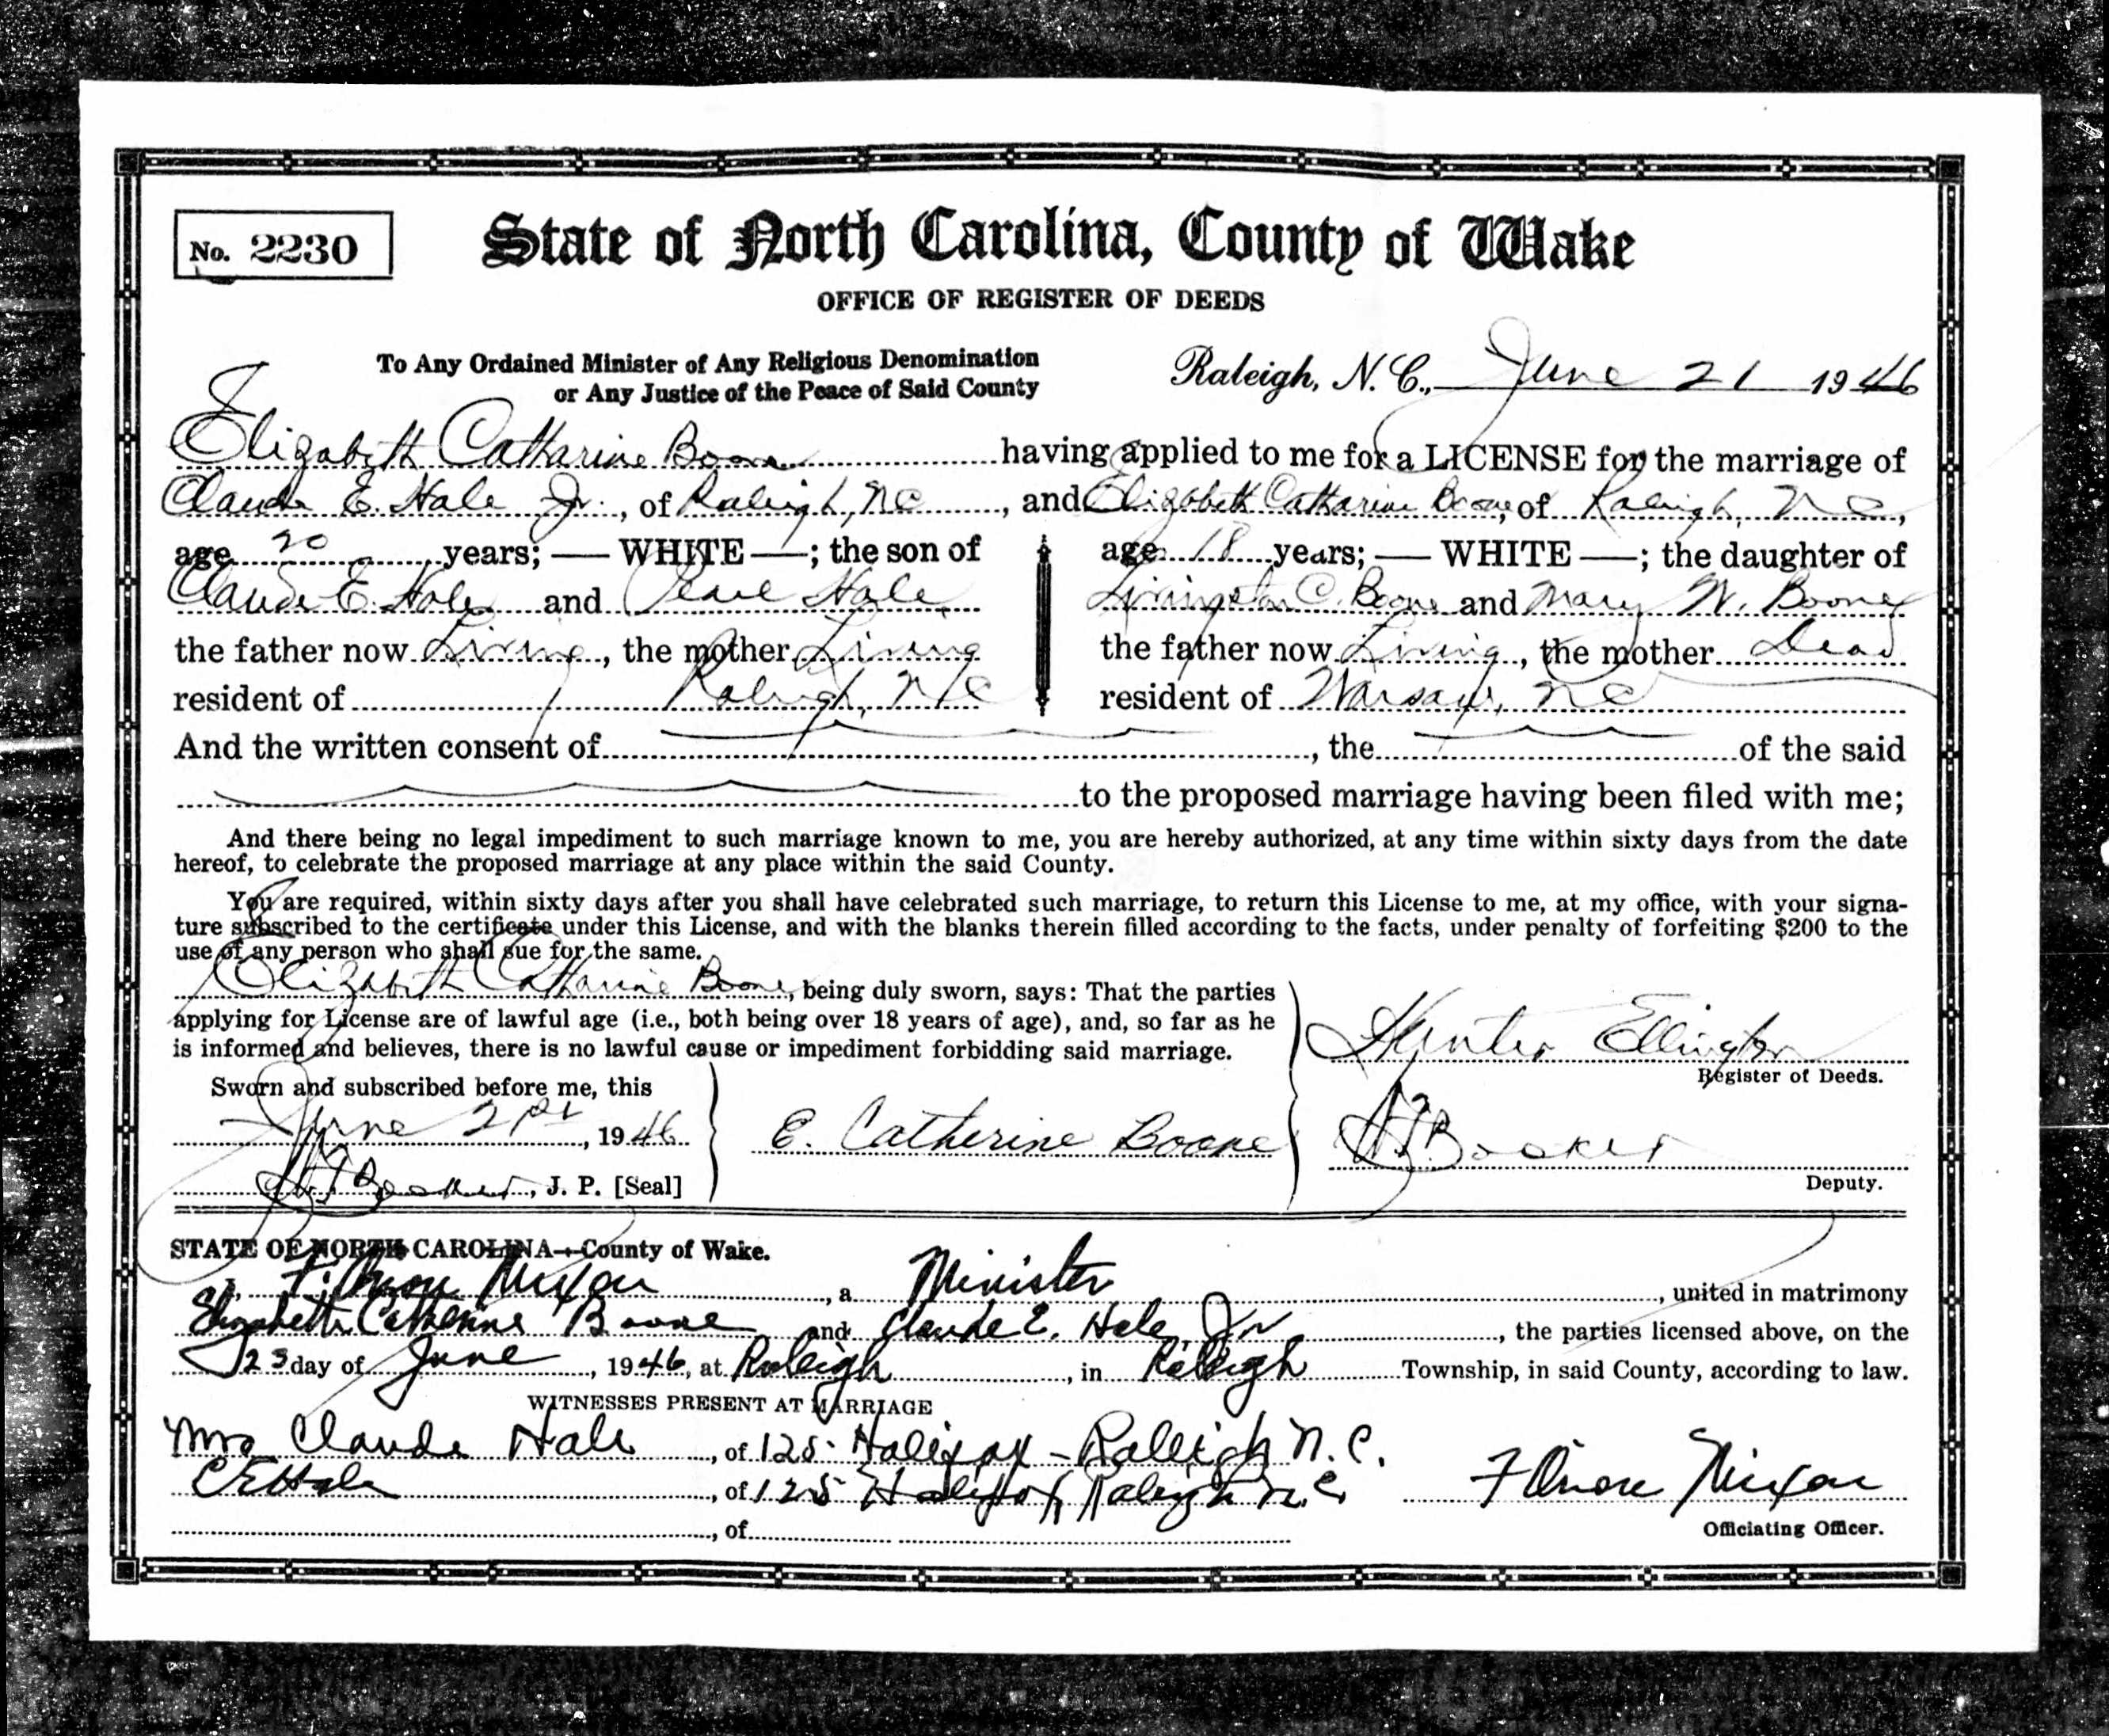 No. 2230
State of North Carolina, County of Wake
OFFICE OF REGISTER OF DEEDS
To Any Ordained Minister of Any Religious Denomination
or Any Justice of the Peace of Said County
Raleigh, N. C., June 21 1946
Elizabeth Catharine Boone having applied to me for a LICENSE for the marriage of
Claude E. Hale Jr., of Raleigh, NC, and Elizabeth Catharine Boone, of Raleigh, NC,
age 20 years; — WHITE —; the son of
Claude E. Hale and Pearl Hale
the father now Living, the mother Living
resident of Raleigh, NC
age 18 years; — WHITE —; the daughter of
Livingston C. Boone and Mary W. Boone
the father now Living, the mother Dead
resident of Warsaw, NC
And the written consent of, the of the said
to the proposed marriage having been filed with me;
And there being no legal impediment to such marriage known to me, you are hereby authorized, at any time within sixty days from the date
hereof, to celebrate the proposed marriage at any place within the said County.
You are required, within sixty days after you shall have celebrated such marriage, to return this License to me, at my office, with your signa-
ture subscribed to the certificate under this License, and with the blanks therein filled according to the facts, under penalty of forfeiting $200 to the
use of any person who shall sue for the same.
Elizabeth Catharine Boone, being duly sworn, says: That the parties
applying for License are of lawful age (i.e., both being over 18 years of age), and, so far as he
is informed and believes, there is no lawful cause or impediment forbidding said marriage.
Sworn and subscribed before me, this
June 21st, 1946
Booker, J. P. [Seal]
E. Catherine Boone
Hunter Ellington
Register of Deeds.
Booker
Deputy.
STATE OF NORTH CAROLINA—County of Wake.
I, F. Nixon, a Minister, united in matrimony
Elizabeth Catherine Boone and Claude E. Hale, Jr, the parties licensed above, on the
23 day of June, 1946, at Raleigh, in Raleigh Township, in said County, according to law.
WITNESSES PRESENT AT MARRIAGE
Mrs Claude Hale, of 125 Halifax - Raleigh N. C.
C E Hale, of 125 Halifax Raleigh N. C.
, of
F Nixon
Officiating Officer.